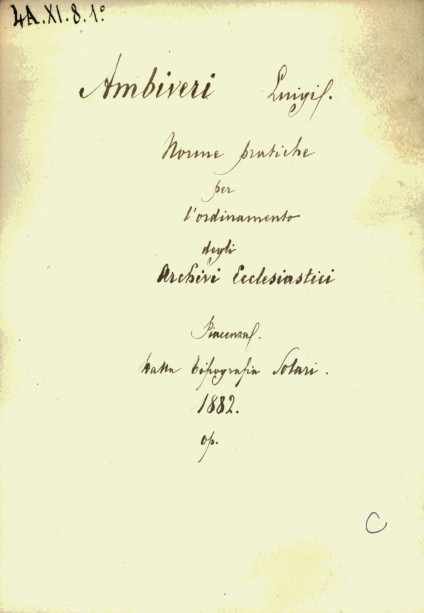 4A.XI.8.1°
Ambiveri Luigi.
Norme pratiche
per
l'ordinamento
degli
Archivi Ecclesiastici
Piacenza.
Dalla Tipografia Solari.
1882.
op.
C